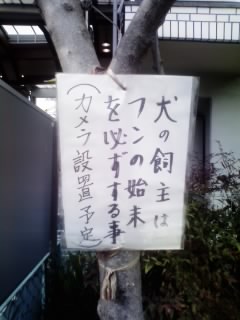 犬の飼主は
フンの始末
を必ずする事
（カメラ設置予定）